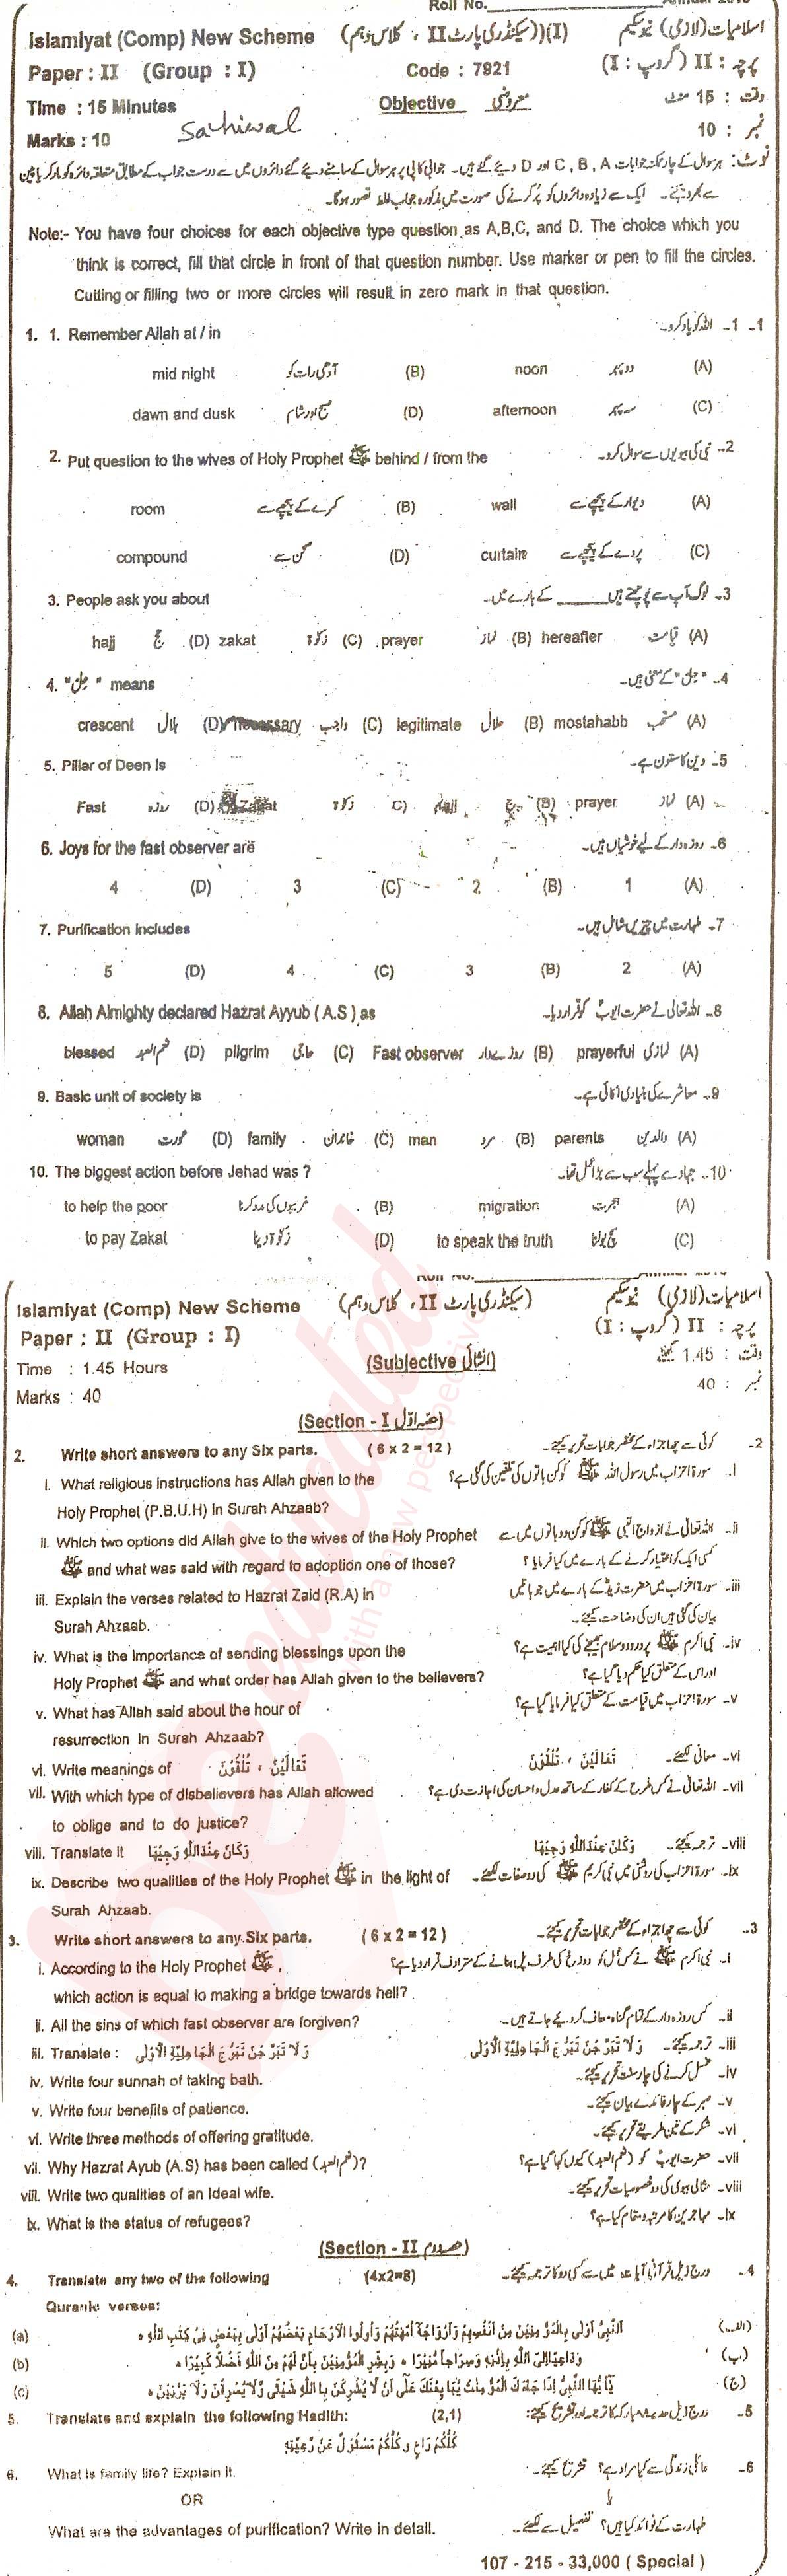 Roll No.
Islamiyat (Comp) New Scheme (سیکنڈری پارٹ II ، کلاس دہم)(I) اسلامیات (لازمی) نیو سکیم
Paper : II (Group : I) Code : 7921 پرچہ : II (گروپ : I)
Time : 15 Minutes Objective معروضی وقت : 15 منٹ
Marks : 10 Sahiwal نمبر : 10
نوٹ: ہر سوال کے چار ممکنہ جوابات A ، B ، C اور D دیئے گئے ہیں۔ جوابی کاپی پر ہر سوال کے سامنے دیئے گئے دائروں میں سے درست جواب کے مطابق متعلقہ دائرہ کو مارکر یا پین
سے بھر دیجئے۔ ایک سے زیادہ دائروں کو پُر کرنے کی صورت میں مذکورہ جواب غلط تصور ہوگا۔
Note:- You have four choices for each objective type question as A,B,C, and D. The choice which you
think is correct, fill that circle in front of that question number. Use marker or pen to fill the circles.
Cutting or filling two or more circles will result in zero mark in that question.
1. 1. Remember Allah at / in 1- 1- اللہ کو یاد کرو۔
mid night آدھی رات کو (B) noon دوپہر (A)
dawn and dusk صبح اور شام (D) afternoon سہ پہر (C)
2. Put question to the wives of Holy Prophet ﷺ behind / from the 2- نبی کی بیویوں سے سوال کرو۔
room کمرے کے پیچھے سے (B) wall دیوار کے پیچھے سے (A)
compound صحن سے (D) curtain پردے کے پیچھے سے (C)
3. People ask you about 3- لوگ آپ سے پوچھتے ہیں ______ کے بارے میں۔
hajj حج (D) zakat زکوٰۃ (C) prayer نماز (B) hereafter قیامت (A)
4. "حل" means 4- "حل" کے معنی ہیں۔
crescent ہلال (D) necessary واجب (C) legitimate حلال (B) mostahabb مستحب (A)
5. Pillar of Deen is 5- دین کا ستون ہے۔
Fast روزہ (D) Zakat زکوٰۃ (C) Hajj حج (B) prayer نماز (A)
6. Joys for the fast observer are 6- روزہ دار کے لیے خوشیاں ہیں۔
4 (D) 3 (C) 2 (B) 1 (A)
7. Purification includes 7- طہارت میں چیزیں شامل ہیں۔
5 (D) 4 (C) 3 (B) 2 (A)
8. Allah Almighty declared Hazrat Ayyub ( A.S ) as 8- اللہ تعالیٰ نے حضرت ایوبؑ کو قرار دیا۔
blessed نعم العبد (D) pilgrim حاجی (C) Fast observer روزے دار (B) prayerful نمازی (A)
9. Basic unit of society is 9- معاشرے کی بنیادی اکائی ہے۔
woman عورت (D) family خاندان (C) man مرد (B) parents والدین (A)
10. The biggest action before Jehad was ? 10- جہاد سے پہلے سب سے بڑا عمل تھا۔
to help the poor غریبوں کی مدد کرنا (B) migration ہجرت (A)
to pay Zakat زکوٰۃ دینا (D) to speak the truth سچ بولنا (C)
Roll No.
Islamiyat (Comp) New Scheme (سیکنڈری پارٹ II ، کلاس دہم) اسلامیات (لازمی) نیو سکیم
Paper : II (Group : I) پرچہ : II (گروپ : I)
Time : 1.45 Hours (Subjective انشائی) وقت : 1.45 گھنٹے
Marks : 40 نمبر : 40
(Section - I حصہ اوّل)
2. Write short answers to any Six parts. ( 6 x 2 = 12 ) 2- کوئی سے چھ اجزاء کے مختصر جوابات تحریر کیجئے۔
i. What religious instructions has Allah given to the i- سورۃ احزاب میں رسول اللہ ﷺ کو کن باتوں کی تلقین کی گئی ہے؟
Holy Prophet (P.B.U.H) in Surah Ahzaab?
ii. Which two options did Allah give to the wives of the Holy Prophet ii- اللہ تعالیٰ نے ازواج النبی ﷺ کو کن دو باتوں میں سے
ﷺ and what was said with regard to adoption one of those? کسی ایک کو اختیار کرنے کے بارے میں کیا فرمایا ؟
iii. Explain the verses related to Hazrat Zaid (R.A) in iii- سورۃ احزاب میں حضرت زیدؓ کے بارے میں جو باتیں
Surah Ahzaab. بیان کی گئی ہیں ان کی وضاحت کیجئے۔
iv. What is the importance of sending blessings upon the iv- نبی اکرم ﷺ پر درود و سلام بھیجنے کی کیا اہمیت ہے؟
Holy Prophet ﷺ and what order has Allah given to the believers? اور اس کے متعلق کیا حکم دیا گیا ہے؟
v. What has Allah said about the hour of v- سورۃ احزاب میں قیامت کے متعلق کیا فرمایا گیا ہے؟
resurrection in Surah Ahzaab?
vi. Write meanings of تَعَالَيْنَ ، تُلْقُوْنَ vi- معانی لکھئے۔ تَعَالَيْنَ ، تُلْقُوْنَ
vii. With which type of disbelievers has Allah allowed vii- اللہ تعالیٰ نے کس طرح کے کفار کے ساتھ عدل و احسان کی اجازت دی ہے؟
to oblige and to do justice?
viii. Translate it وَكَانَ عِنْدَاللّٰهِ وَجِيْهًا viii- ترجمہ کیجئے۔ وَكَانَ عِنْدَاللّٰهِ وَجِيْهًا
ix. Describe two qualities of the Holy Prophet ﷺ in the light of ix- سورۃ احزاب کی روشنی میں نبی کریم ﷺ کی دو صفات لکھئے۔
Surah Ahzaab.
3. Write short answers to any Six parts. ( 6 x 2 = 12 ) 3- کوئی سے چھ اجزاء کے مختصر جوابات تحریر کیجئے۔
i. According to the Holy Prophet ﷺ, i- نبی اکرم ﷺ نے کس عمل کو دوزخ کی طرف پل بنانے کے مترادف قرار دیا ہے؟
which action is equal to making a bridge towards hell?
ii. All the sins of which fast observer are forgiven? ii- کس روزہ دار کے تمام گناہ معاف کر دیئے جاتے ہیں۔
iii. Translate : وَلَا تَبَرَّجْنَ تَبَرُّجَ الْجَاهِلِيَّةِ الْاُوْلٰى iii- ترجمہ کیجئے۔ وَلَا تَبَرَّجْنَ تَبَرُّجَ الْجَاهِلِيَّةِ الْاُوْلٰى
iv. Write four sunnah of taking bath. iv- غسل کرنے کی چار سنت تحریر کیجئے۔
v. Write four benefits of patience. v- صبر کے چار فائدے بیان کیجئے۔
vi. Write three methods of offering gratitude. vi- شکر کے تین طریقے تحریر کیجئے۔
vii. Why Hazrat Ayub (A.S) has been called (نعم العبد)? vii- حضرت ایوبؑ کو (نعم العبد) کیوں کہا گیا ہے؟
viii. Write two qualities of an ideal wife. viii- مثالی بیوی کی دو خصوصیات تحریر کیجئے۔
ix. What is the status of refugees? ix- مہاجرین کا مرتبہ و مقام کیا ہے؟
(Section - II حصہ دوم)
4. Translate any two of the following (4x2=8) 4- درج ذیل قرآنی آیات میں سے کسی دو کا ترجمہ کیجئے۔
Quranic verses:
(a) اَلنَّبِيُّ اَوْلٰى بِالْمُؤْمِنِيْنَ مِنْ اَنْفُسِهِمْ وَاَزْوَاجُهٗٓ اُمَّهٰتُهُمْ وَاُولُوا الْاَرْحَامِ بَعْضُهُمْ اَوْلٰى بِبَعْضٍ فِيْ كِتٰبِ اللّٰهِ ہ (الف)
(b) وَدَاعِيًا اِلَى اللّٰهِ بِاِذْنِهٖ وَسِرَاجًا مُّنِيْرًا ہ وَبَشِّرِ الْمُؤْمِنِيْنَ بِاَنَّ لَهُمْ مِّنَ اللّٰهِ فَضْلًا كَبِيْرًا ہ (ب)
(c) يٰٓاَيُّهَا النَّبِيُّ اِذَا جَآءَكَ الْمُؤْمِنٰتُ يُبَايِعْنَكَ عَلٰٓى اَنْ لَّا يُشْرِكْنَ بِاللّٰهِ شَيْئًا وَّلَا يَسْرِقْنَ وَلَا يَزْنِيْنَ ہ (ج)
5. Translate and explain the following Hadith: (2,1) 5- درج ذیل حدیث مبارکہ کا ترجمہ اور تشریح کیجئے:
كُلُّكُمْ رَاعٍ وَّكُلُّكُمْ مَسْئُوْلٌ عَنْ رَّعِيَّتِهٖ
6. What is family life? Explain it. 6- عائلی زندگی سے کیا مراد ہے؟ تشریح کیجئے۔
OR یا
What are the advantages of purification? Write in detail. طہارت کے فوائد کیا ہیں؟ تفصیل سے لکھئے۔
107 - 215 - 33,000 ( Special )